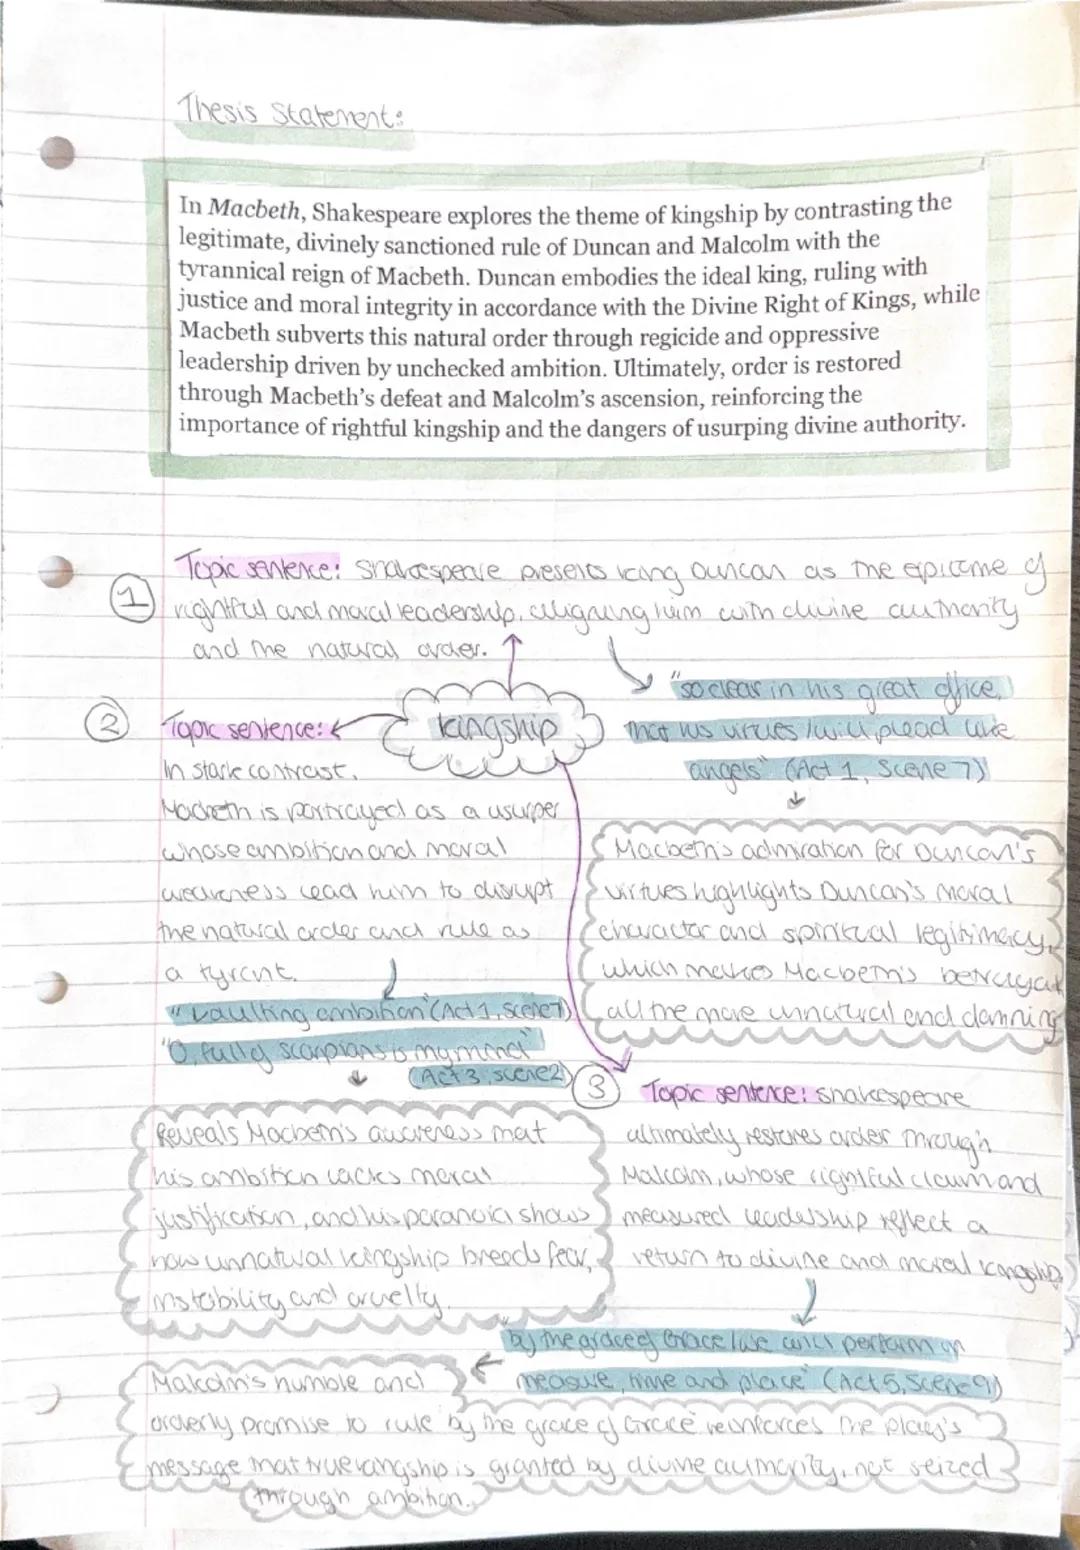 Thesis Statement:
In Macbeth, Shakespeare explores the theme of kingship by contrasting the
legitimate, divinely sanctioned rule of Duncan and Malcolm with the
tyrannical reign of Macbeth. Duncan embodies the ideal king, ruling with
justice and moral integrity in accordance with the Divine Right of Kings, while
Macbeth subverts this natural order through regicide and oppressive
leadership driven by unchecked ambition. Ultimately, order is restored
through Macbeth's defeat and Malcolm's ascension, reinforcing the
importance of rightful kingship and the dangers of usurping divine authority.
1
Topic sentence: Shakespeare presents king Duncan as the epitome of
rightful and moral leadership, aligning him with divine authority
and the natural order.
kingship
"so clear in his great office,
that his virtues / will plead like
angels" (Act 1, Scene 7)
Macbeth's admiration for Duncan's
virtues highlights Duncan's moral
character and spiritual legitimacy,
which makes Macbeth's betrayal
all the more unnatural and damning
2
Topic sentence:
In stark contrast,
Macbeth is portrayed as a usurper
whose ambition and moral
weakness lead him to disrupt
the natural order and rule as
a tyrant.
"vaulting ambition" (Act 1, Scene 7)
"O, full of scorpions is my mind"
(Act 3, scene 2)
Reveals Macbeth's awareness that
his ambition lacks moral
justification, and his paranoia shows
how unnatural kingship breeds fear,
instability and cruelty.
3
Topic sentence: Shakespeare
ultimately restores order through
Malcolm, whose rightful claim and
measured leadership reflect a
return to divine and moral kingship.
"by the grace of Grace / we will perform in
measure, time and place" (Act 5, Scene 9)
Malcolm's humble and
orderly promise to rule 'by the grace of Grace' reinforces the play's
message that true kingship is granted by divine authority, not seized
through ambition.